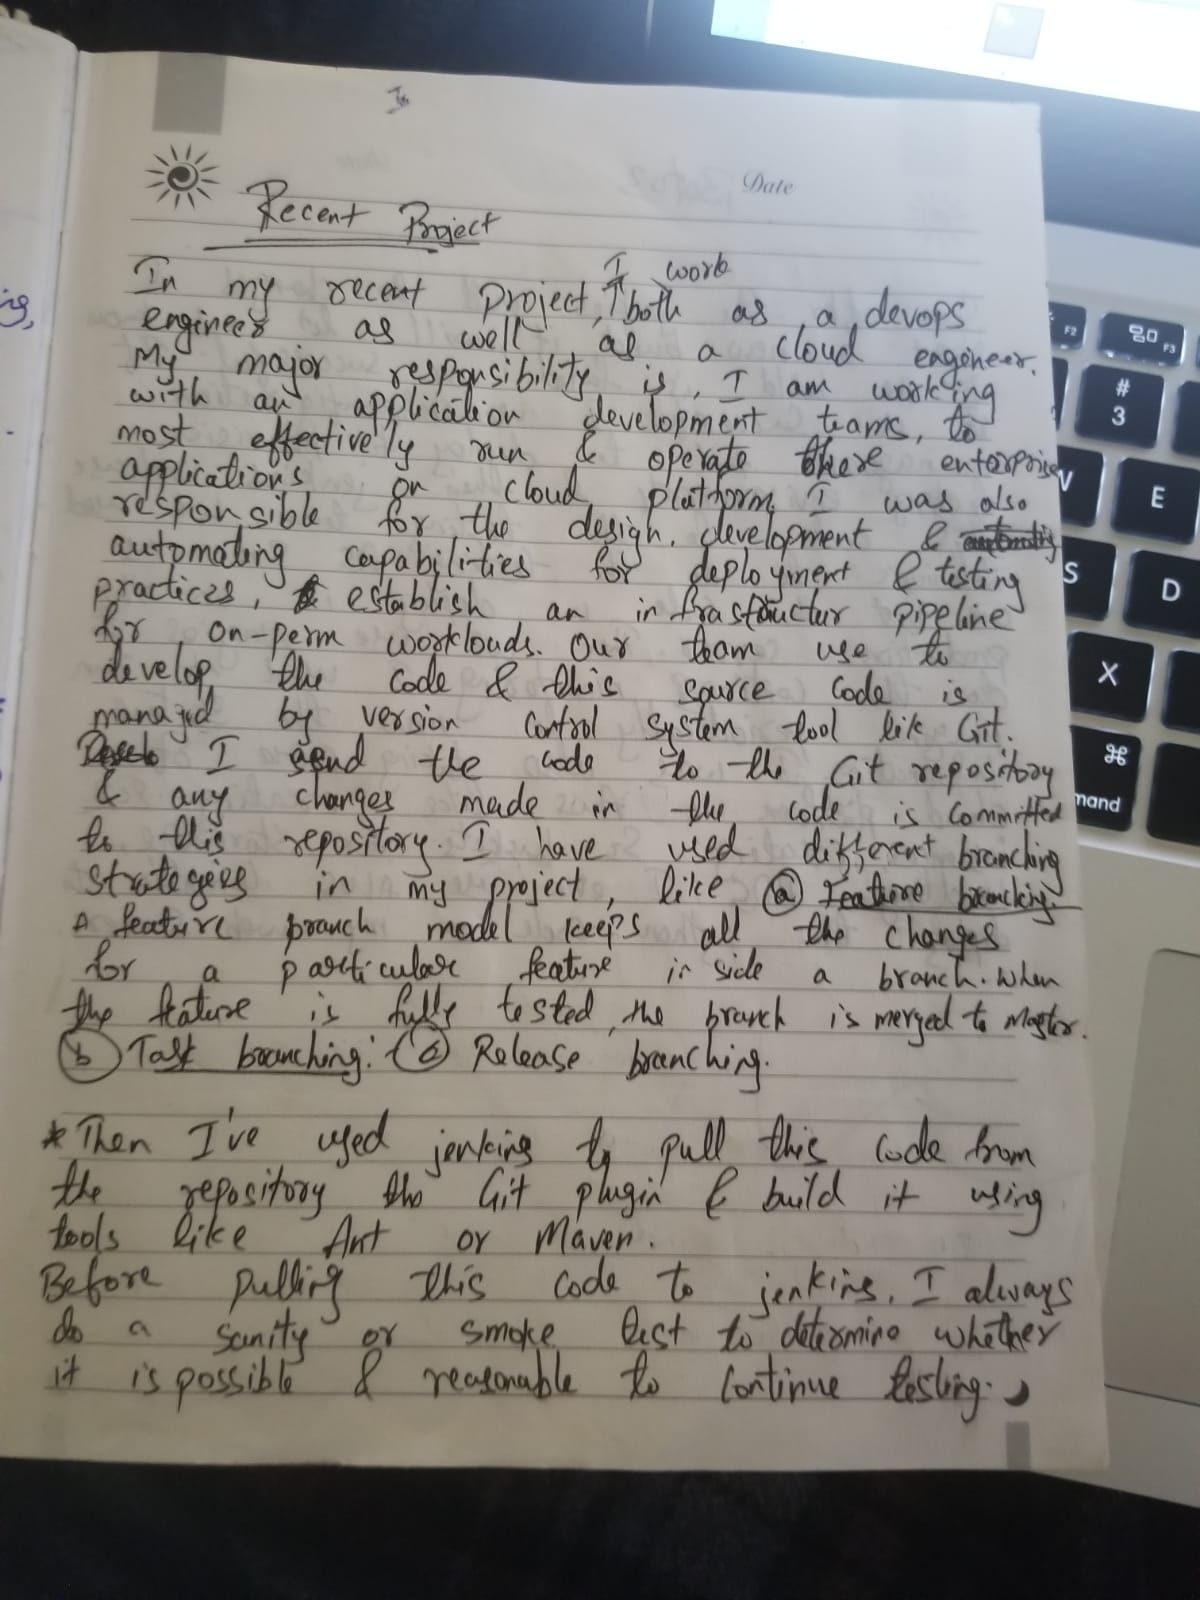 Date
Recent Project
I work
In my recent project, ↑ both as a devops
engineer as well as a cloud engineer.
My major responsibility is, I am working
with an application development teams, to
most effectively run & operate there enterprise
applications on cloud platform. I was also
responsible for the design, development &
automating capabilities for deployment & testing
practices, & establish an infrastructur pipeline
for on-perm workclouds. Our team use to
develop the code & this source code is
managed by version control system tool like Git.
I send the code to the Git repository
& any changes made in the code is committed
to this repository. I have used different branching
strategies in my project, like (a) Feature branching.
A feature branch model keeps all the changes
for a particular feature in side a branch. When
the feature is fully tested, the branch is merged to Master.
(b) Task branching: (c) Release branching.
* Then I've used jenkins to pull this code from
the repository tho Git plugin & build it using
tools like Ant or Maven.
Before pulling this code to jenkins, I always
do a sanity or smoke test to determine whether
it is possible & reasonable to continue testing.
F2
F3
#
3
E
S
D
X
⌘
mand